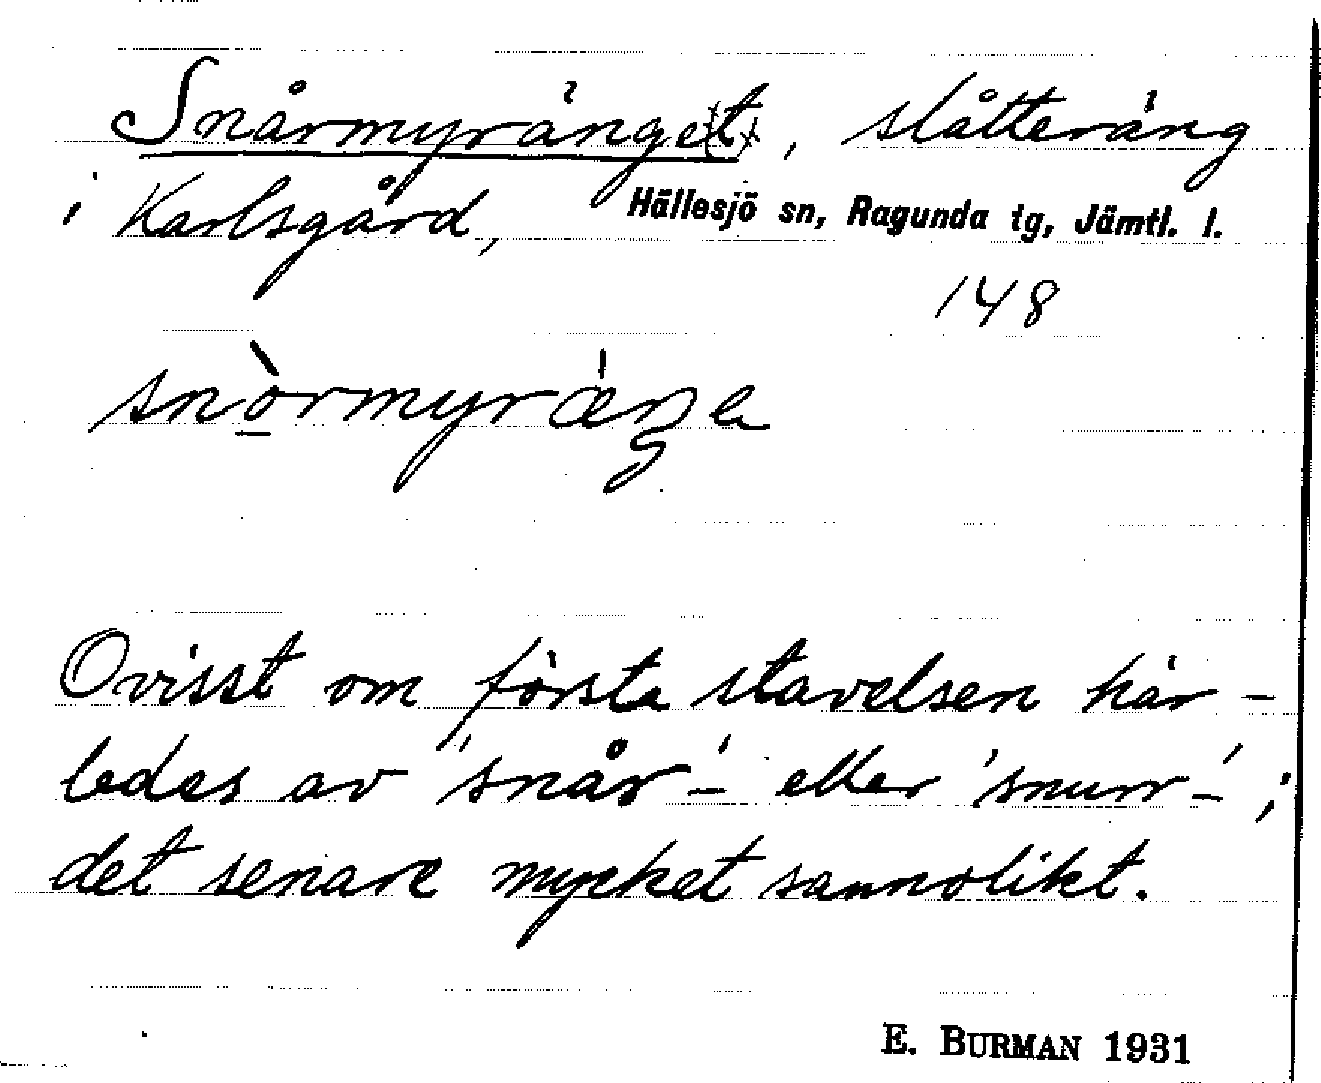 Snårmyränge(t), slåtteräng
i Karlsgård, Hällesjö sn, Ragunda tg, Jämtl. l.
148
snò̱rmyrǽŋa
Ovisst om första stavelsen här-
ledes av 'snår-' eller 'snurr-';
det senare mycket sannolikt.
E. BURMAN 1931